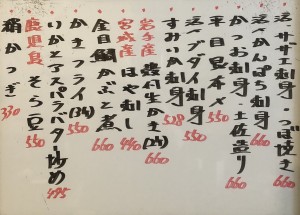 活サザエ刺身・つぼ焼き 660
活かんぱち刺身 660
かつお刺身・土佐造り 660
平目昆布〆 550
活ブダイ刺身 550
すみいか刺身 528
岩手産 生かき(2ヶ) 660
宮城産 ほや刺し 440
金目鯛かぶと煮 660
かきフライ(2ヶ) 550
いかとアスパラバター炒め 495
鹿児島 そら豆 550
絹かつぎ 330